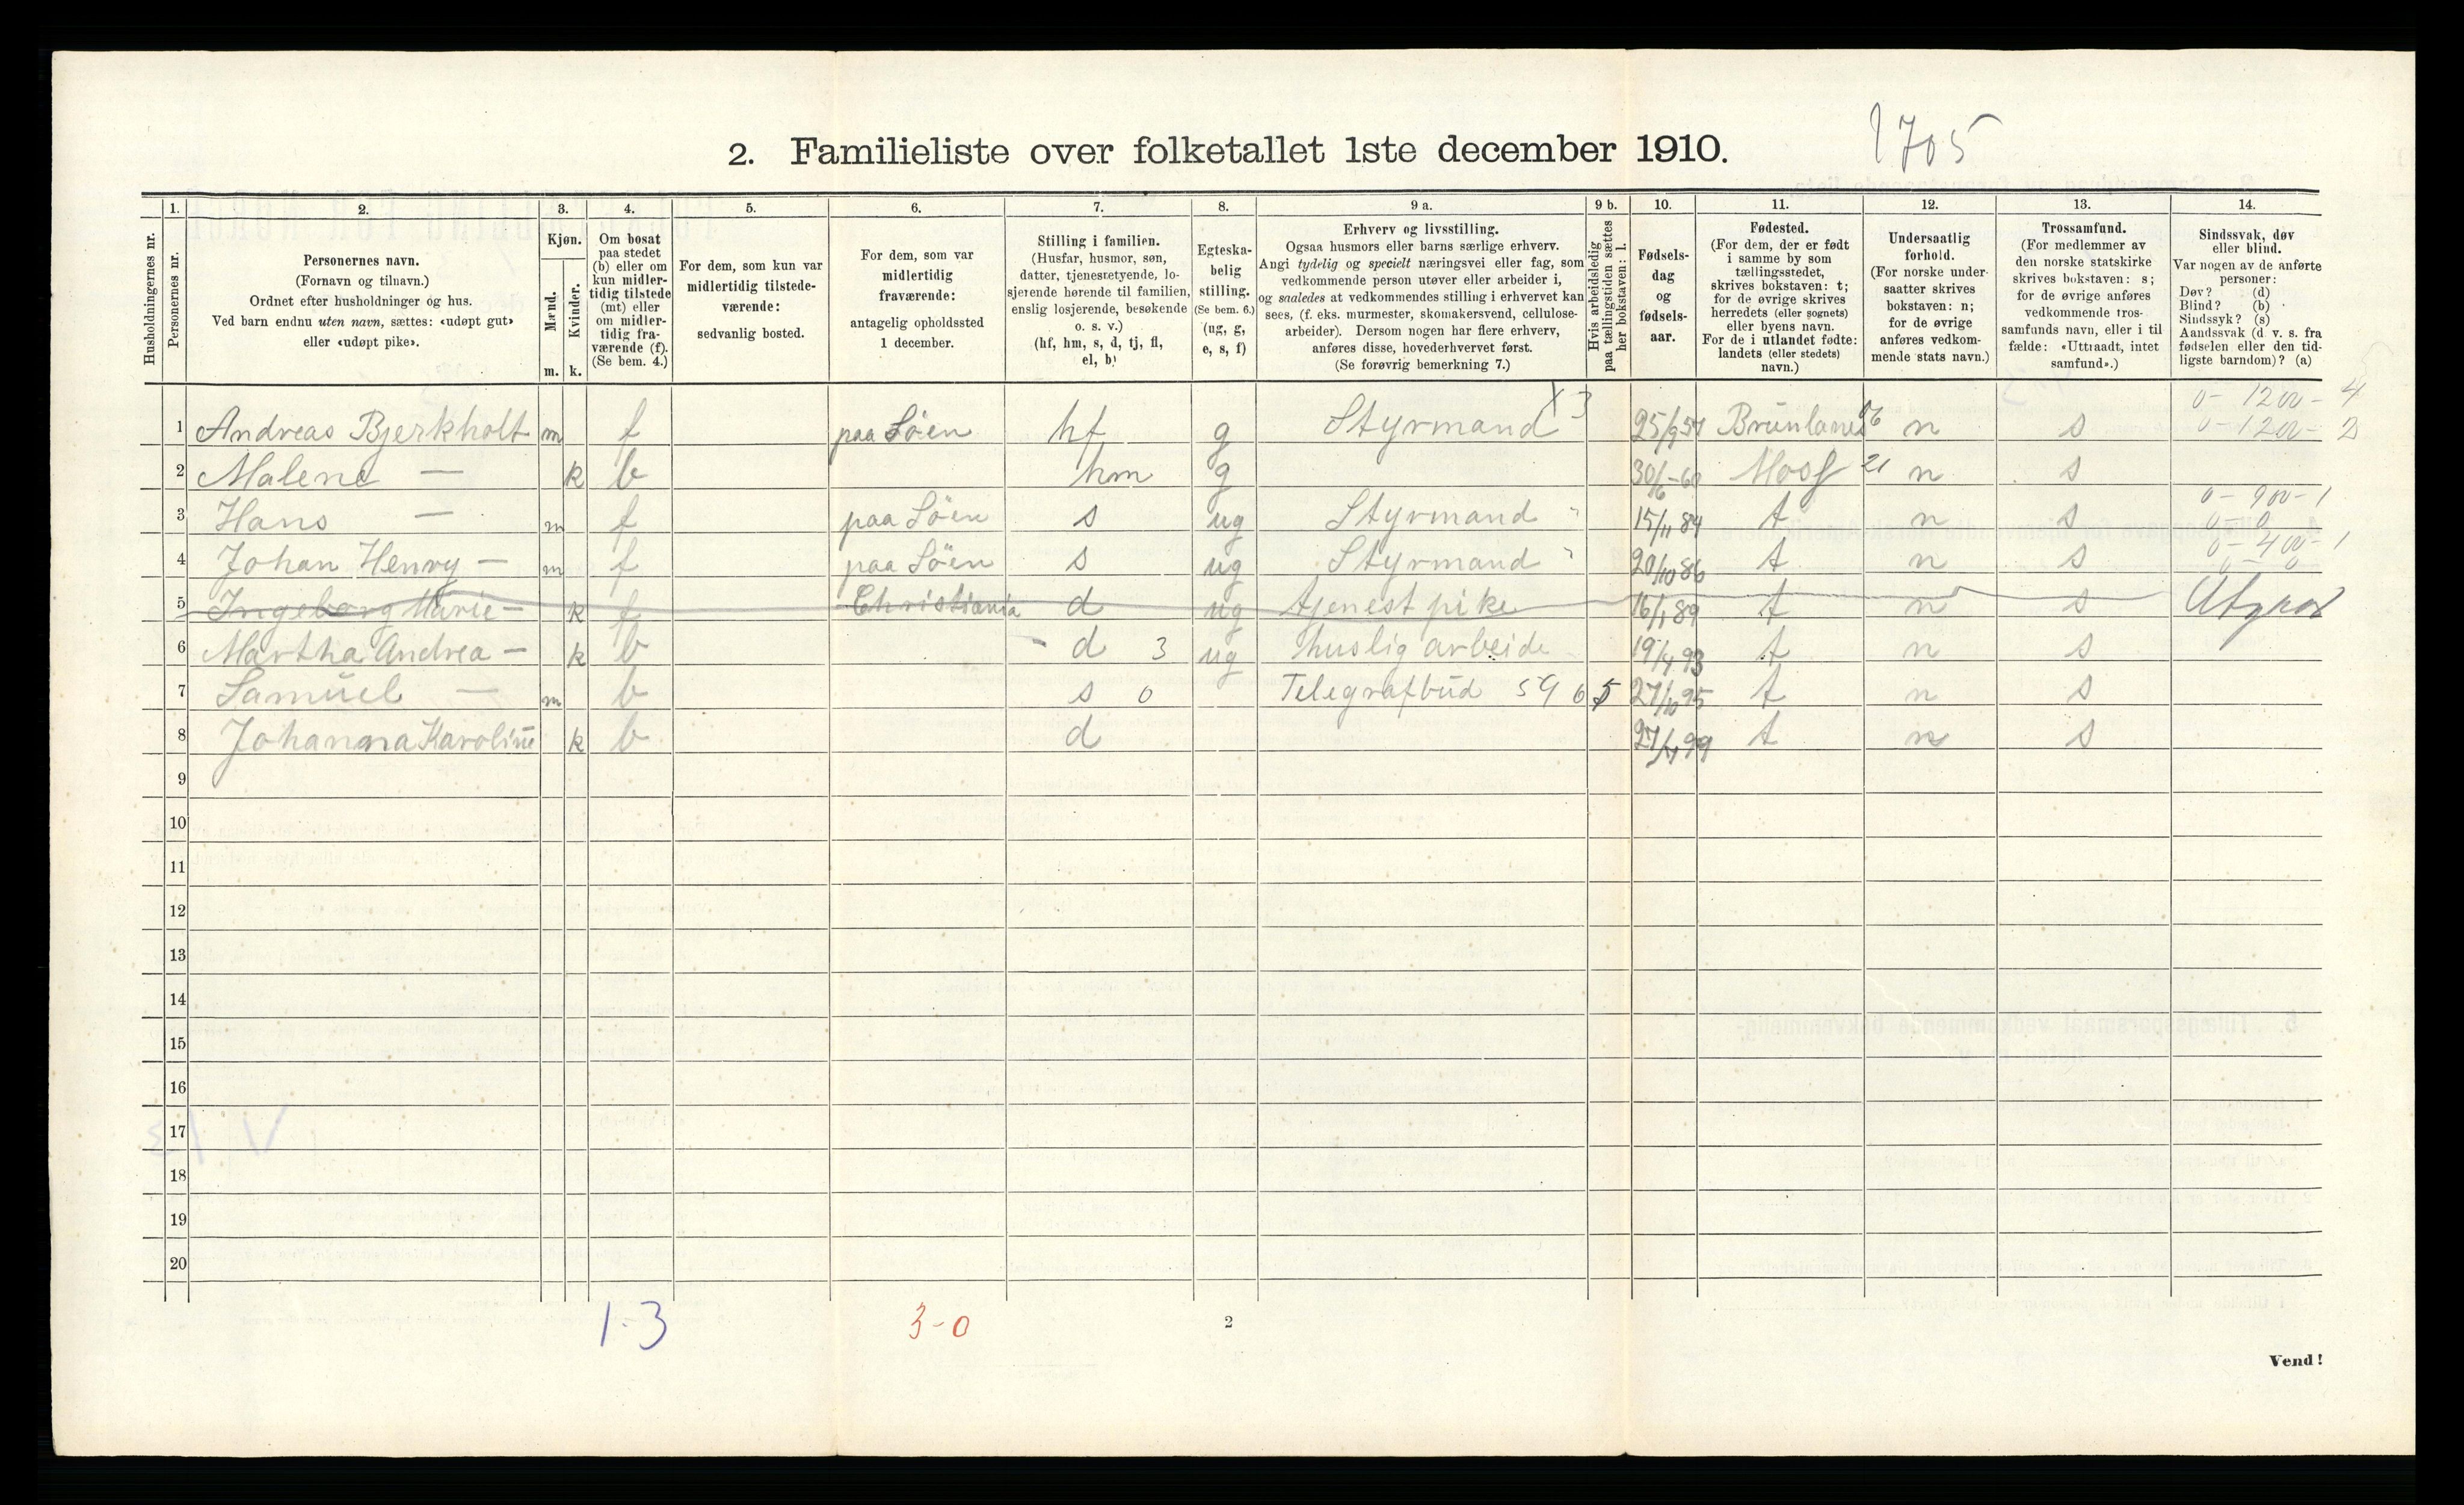 2. Familieliste over folketallet 1ste december 1910.
1705
1. 2. 3. 4. 5. 6. 7. 8. 9 a. 9 b. 10. 11. 12. 13. 14.
Husholdningernes nr.
Personernes nr.
Personernes navn.
(Fornavn og tilnavn.)
Ordnet efter husholdninger og hus.
Ved barn endnu uten navn, sættes: «udøpt gut»
eller «udøpt pike».
Kjøn.
Mænd.
m.
Kvinder.
k.
Om bosat
paa stedet
(b) eller om
kun midler-
tidig tilstede
(mt) eller
om midler-
tidig fra-
værende (f).
(Se bem. 4.)
For dem, som kun var
midlertidig tilstede-
værende:
sedvanlig bosted.
For dem, som var
midlertidig
fraværende:
antagelig opholdssted
1 december.
Stilling i familien.
(Husfar, husmor, søn,
datter, tjenestetyende, lo-
sjerende hørende til familien,
enslig losjerende, besøkende
o. s. v.)
(hf, hm, s, d, tj, fl,
el, b)
Egteska-
belig
stilling.
(Se bem. 6.)
(ug, g,
e, s, f)
Erhverv og livsstilling.
Ogsaa husmors eller barns særlige erhverv.
Angi tydelig og specielt næringsvei eller fag, som
vedkommende person utøver eller arbeider i,
og saaledes at vedkommendes stilling i erhvervet kan
sees, (f. eks. murmester, skomakersvend, cellulose-
arbeider). Dersom nogen har flere erhverv,
anføres disse, hovederhvervet først.
(Se forøvrig bemerkning 7.)
Hvis arbeidsledig
paa tællingstiden sættes
her bokstaven: l.
Fødsels-
dag
og
fødsels-
aar.
Fødested.
(For dem, der er født
i samme by som
tællingsstedet,
skrives bokstaven: t;
for de øvrige skrives
herredets (eller sognets)
eller byens navn.
For de i utlandet fødte:
landets (eller stedets)
navn.)
Undersaatlig
forhold.
(For norske under-
saatter skrives
bokstaven: n;
for de øvrige
anføres vedkom-
mende stats navn.)
Trossamfund.
(For medlemmer av
den norske statskirke
skrives bokstaven: s;
for de øvrige anføres
vedkommende tros-
samfunds navn, eller i til
fælde: «Uttraadt, intet
samfund».)
Sindssvak, døv
eller blind.
Var nogen av de anførte
personer:
Døv? (d)
Blind? (b)
Sindssyk? (s)
Aandssvak (d v. s. fra
fødselen eller den tid-
ligste barndom)? (a)
X 3
0 - 1200 - 4
1 Andreas Bjerkholt m f paa Söen hf g Styrmand 25/9 57 Brünlanes 06 n s 0 - 1200 - 2
2 Malene — k b hm g 30/6-60 Moss 21 n s
0 - 900 - 1
3 Hans — m f paa Söen s ug Styrmand " 15/11 84 t n s 0 - 0
0 - 400 - 1
4 Johan Henry — m f paa Söen s ug Styrmand " 20/10 86 t n s 0 - 0
5 Ingeborg Marie — k f Christiania d ug tjenestpike 16/1 89 t n s Utgaar
6 Martha Andrea — k b d 3 ug huslig arbeide 19/4 93 t n s
7 Samüel — m b s 0 Telegrafbüd 59 6 5 27/10 95 t n s
8 Johanna Karoline k b d 27/4 99 t n s
9
10
11
12
13
14
15
16
17
18
19
20
1-3
3-0
2
Vend!